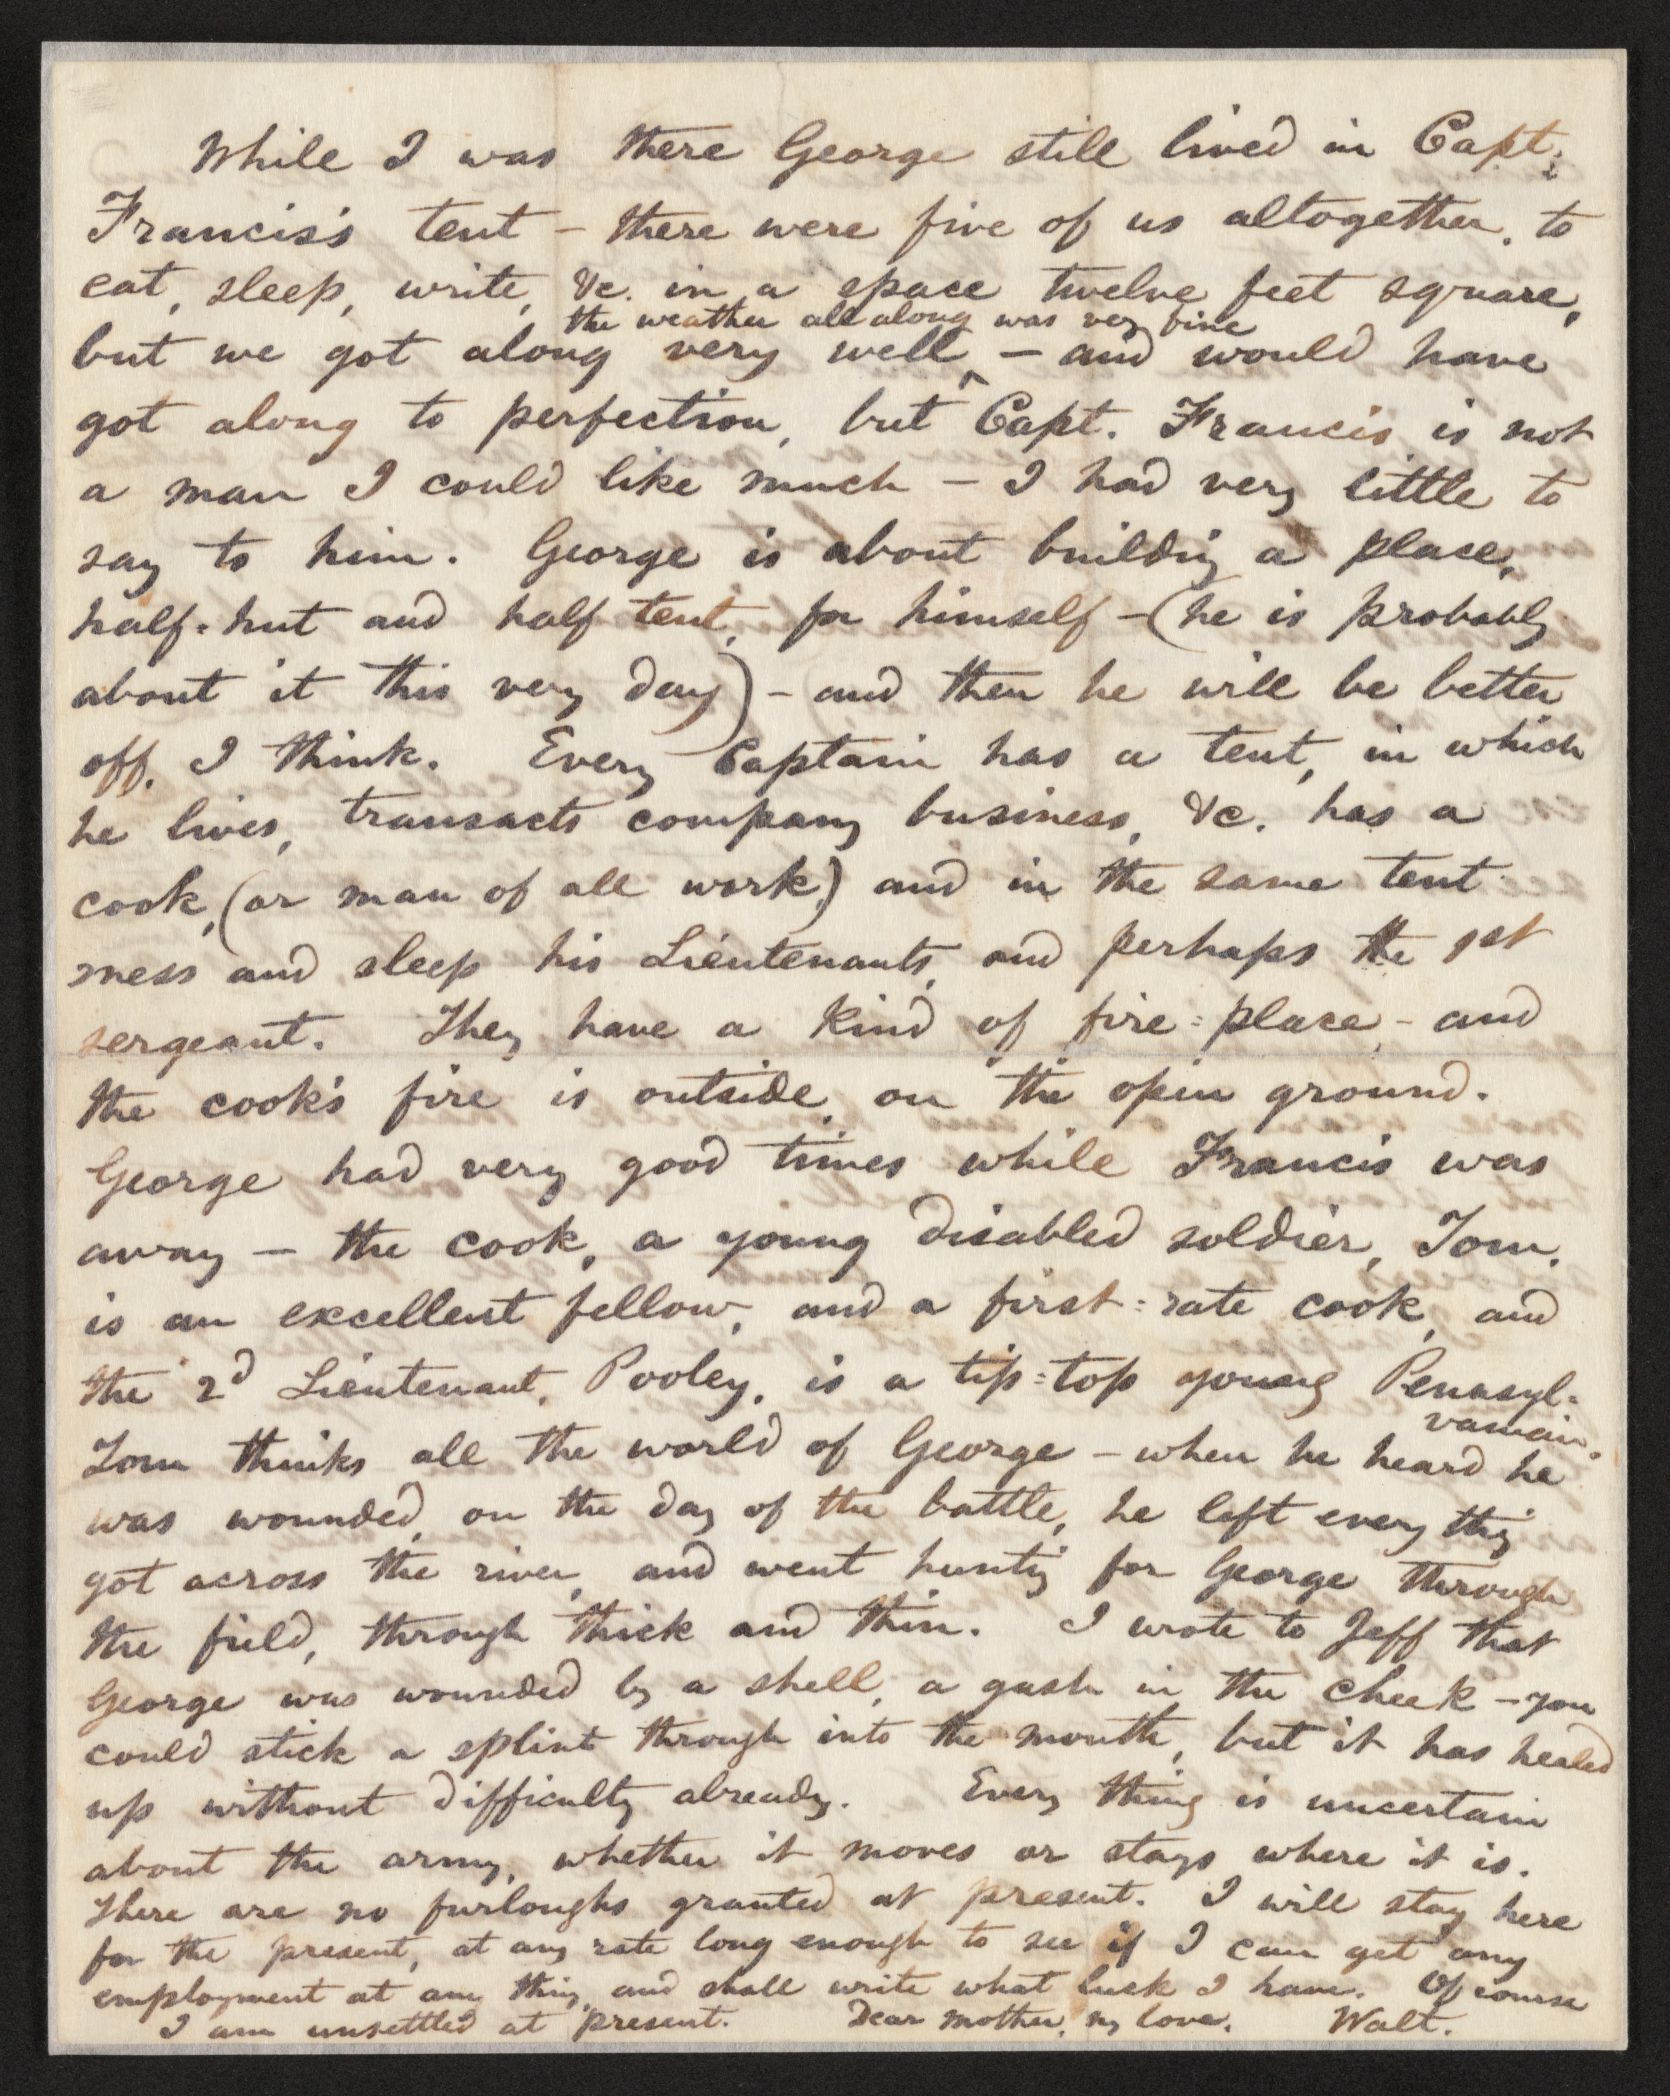 While I was there George still lived in Capt.
Francis's tent – there were five of us altogether, to
eat, sleep, write, &c. in a space twelve feet square,
the weather all along was very fine
but we got along very well, ^ – and would have
got along to perfection, but Capt. Francis is not
a man I could like much – I had very little to
say to him. George is about building a place,
half-hut and half tent, for himself – (he is probably
about it this very day) – and then he will be better
off, I think. Every Captain has a tent, in which
he lives, transacts company business, &c. has a
cook, (or man of all work,) and in the same tent
mess and sleep his Lieutenants, and perhaps the 1st
sergeant. They have a kind of fire-place, – and
the cook's fire is outside, on the open ground.
George had very good times while Francis was
away – the cook, a young disabled soldier, Tom,
is an excellent fellow, and a first-rate cook, and
the 2d Lieutenant, Pooley, is a tip-top young Pennsyl-
vanian.
Tom thinks all the world of George – when he heard he
was wounded, on the day of the battle, he left every thing
got across the river, and went hunting for George through
the field, through thick and thin. I wrote to Jeff that
George was wounded by a shell, a gash in the cheek – you
could stick a splint through into the mouth, but it has healed
up without difficulty already. Every thing is uncertain
about the army, whether it moves or stays where it is.
There are no furloughs granted at present. I will stay here
for the present, at any rate long enough to see if I can get any
employment at any thing, and shall write what luck I have. Of course
I am unsettled at present. Dear mother, my love. Walt.